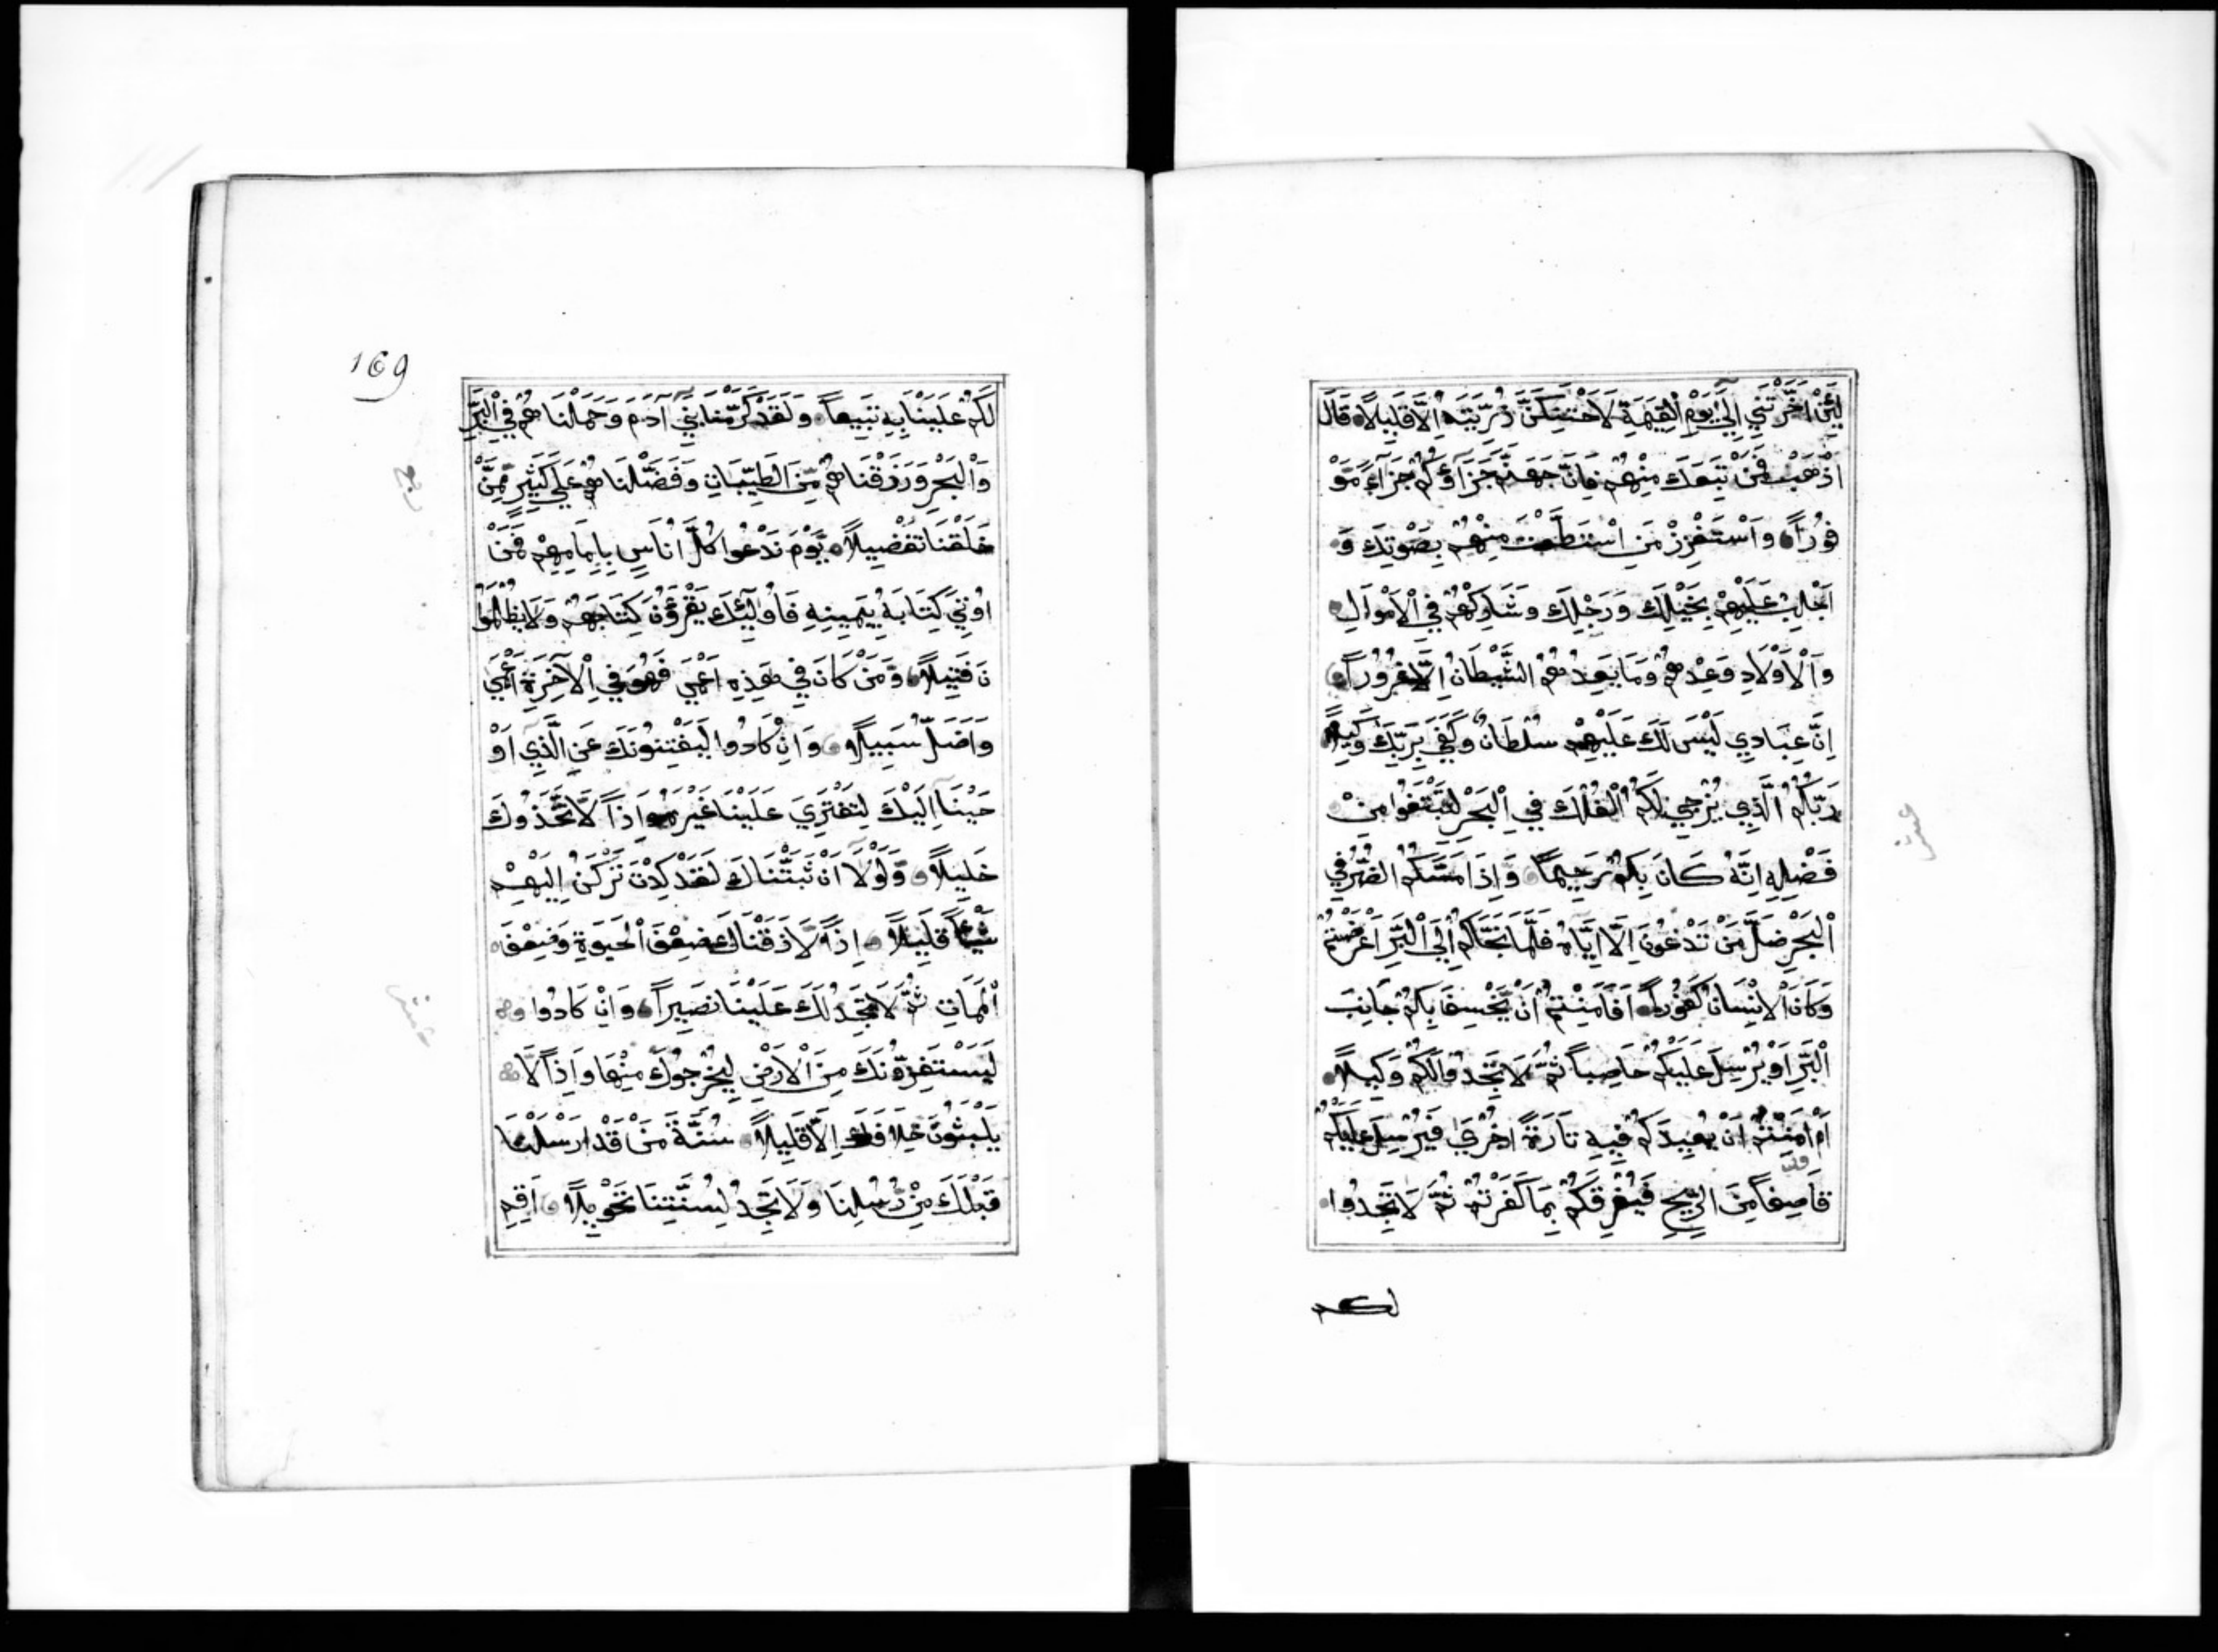 لَئِنْ اَخَّرْتَنِي اِلَىٰ يَوْمِ الْقِيٰمَةِ لَاَحْتَنِكَنَّ ذُرِّيَّتَهُ اِلَّا قَلِيلًا قَالَ
اذْهَبْ فَمَنْ تَبِعَكَ مِنْهُمْ فَاِنَّ جَهَنَّمَ جَزَآؤُكُمْ جَزَآءً مَوْ
فُورًا وَاسْتَفْزِزْ مَنِ اسْتَطَعْتَ مِنْهُمْ بِصَوْتِكَ وَ
اَجْلِبْ عَلَيْهِمْ بِخَيْلِكَ وَرَجِلِكَ وَشَارِكْهُمْ فِي الْاَمْوَالِ
وَالْاَوْلَادِ وَعِدْهُمْ وَمَا يَعِدُهُمُ الشَّيْطَانُ اِلَّا غُرُورًا
اِنَّ عِبَادِي لَيْسَ لَكَ عَلَيْهِمْ سُلْطَانٌ وَكَفَي بِرَبِّكَ وَكِيلًا
رَبُّكُمُ الَّذِي يُزْجِي لَكُمُ الْفُلْكَ فِي الْبَحْرِ لِتَبْتَغُوا مِنْ
فَضْلِهِ اِنَّهُ كَانَ بِكُمْ رَحِيمًا وَاِذَا مَسَّكُمُ الضُّرُّ فِي
الْبَحْرِ ضَلَّ مَنْ تَدْعُونَ اِلَّا اِيَّاهُ فَلَمَّا نَجَّاكُمْ اِلَي الْبَرِّ اَعْرَضْتُمْ
وَكَانَ الْاِنْسَانُ كَفُورًا اَفَاَمِنْتُمْ اَنْ يَخْسِفَ بِكُمْ جَانِبَ
الْبَرِّ اَوْ يُرْسِلَ عَلَيْكُمْ حَاصِبًا ثُمَّ لَا تَجِدُوا لَكُمْ وَكِيلًا
اَمْ اَمِنْتُمْ اَنْ يُعِيدَكُمْ فِيهِ تَارَةً اُخْرَىٰ فَيُرْسِلَ عَلَيْكُمْ
قَاصِفًا مِنَ الرِّيحِ فَيُغْرِقَكُمْ بِمَا كَفَرْتُمْ ثُمَّ لَا تَجِدُوا
لكم
169
لَكُمْ عَلَيْنَا بِهِ تَبِيعًا وَلَقَدْ كَرَّمْنَا بَنِي آدَمَ وَحَمَلْنَاهُمْ فِي الْبَرِّ
وَالْبَحْرِ وَرَزَقْنَاهُمْ مِنَ الطَّيِّبَاتِ وَفَضَّلْنَاهُمْ عَلَي كَثِيرٍ مِمَّنْ
خَلَقْنَا تَفْضِيلًا يَوْمَ نَدْعُوا كُلَّ اُنَاسٍ بِاِمَامِهِمْ فَمَنْ
اُوتِيَ كِتَابَهُ بِيَمِينِهِ فَاُولٰٓئِكَ يَقْرَؤُنَ كِتَابَهُمْ وَلَا يُظْلَمُو
نَ فَتِيلًا وَمَنْ كَانَ فِي هَذِهِ اَعْمَي فَهُوَ فِي الْآخِرَةِ اَعْمَي
وَاَضَلُّ سَبِيلًا وَاِنْ كَادُوا لَيَفْتِنُونَكَ عَنِ الَّذِي اَوْ
حَيْنَا اِلَيْكَ لِتَفْتَرِيَ عَلَيْنَا غَيْرَهُ وَاِذًا لَاتَّخَذُوكَ
خَلِيلًا وَلَوْلَا اَنْ ثَبَّتْنَاكَ لَقَدْ كِدْتَ تَرْكَنُ اِلَيْهِمْ
شَيْئًا قَلِيلًا اِذًا لَاَذَقْنَاكَ ضِعْفَ الْحَيٰوةِ وَضِعْفَ
الْمَمَاتِ ثُمَّ لَا تَجِدُ لَكَ عَلَيْنَا نَصِيرًا وَاِنْ كَادُوا
لَيَسْتَفِزُّونَكَ مِنَ الْاَرْضِ لِيُخْرِجُوكَ مِنْهَا وَاِذًا لَا
يَلْبَثُونَ خِلَافَكَ اِلَّا قَلِيلًا سُنَّةَ مَنْ قَدْ اَرْسَلْنَا
قَبْلَكَ مِنْ رُسُلِنَا وَلَا تَجِدُ لِسُنَّتِنَا تَحْوِيلًا اَقِمِ